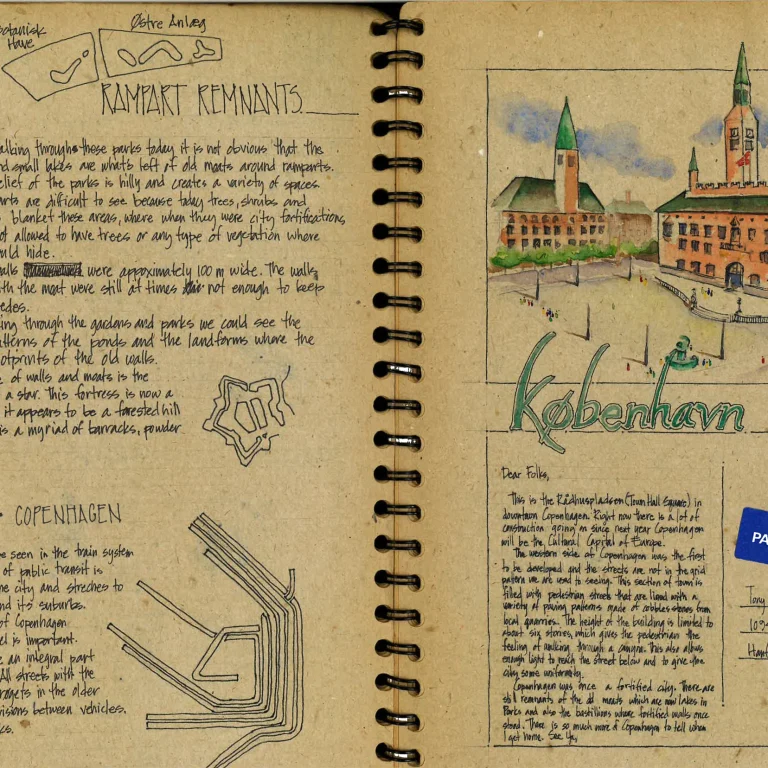 Botanisk
Have
Østre Anlæg
RAMPART REMNANTS
alking through these parks today it is not obvious that the
nd small lakes are what's left of old moats around ramparts.
elief of the parks is hilly and creates a variety of spaces.
arts are difficult to see because today trees, shrubs and
blanket these areas, where when they were city fortifications
ot allowed to have trees or any type of vegetation where
ould hide.
alls were appoximately 100 m wide. The walls
ith the moat were still at times not enough to keep
edes.
ing through the gardens and parks we could see the
atterns of the ponds and the landforms where the
otprints of the old walls.
e of walls and moats is the
a star. This fortress is now a
it appears to be a forested hill
is a myriad of barracks, powder
COPENHAGEN
be seen in the train system
of public transit is
he city and streches to
nd it's suburbs.
of Copenhagen
el is important.
e an integral part
All streets with the
rgets in the older
isions between vehicles.
cs.
København
Dear Folks,
This is the Rådhuspladsen (Town Hall Square) in
downtown Copenhagen. Right now there is a lot of
construction going on since next year Copenhagen
will be the Cultural Capital of Europe.
The western side of Copenhagen was the first
to be developed and the streets are not in the grid
pattern we are used to seeing. This section of town is
filled with pedestrian streets that are lined with a
variety of paving patterns made of cobblestones from
local quarries. The height of the building is limited to
about six stories, which gives the pedestrian the
feeling of walking through a canyon. This also allows
enough light to reach the street below and to give the
city some uniformity.
Copenhagen was once a fortified city. There are
still remnants of the old moats which are now lakes in
Parks and also the bastillions where fortified walls once
stood. There is so much more of Copenhagen to tell when
I get home. See Ya,
PA
Tony
109